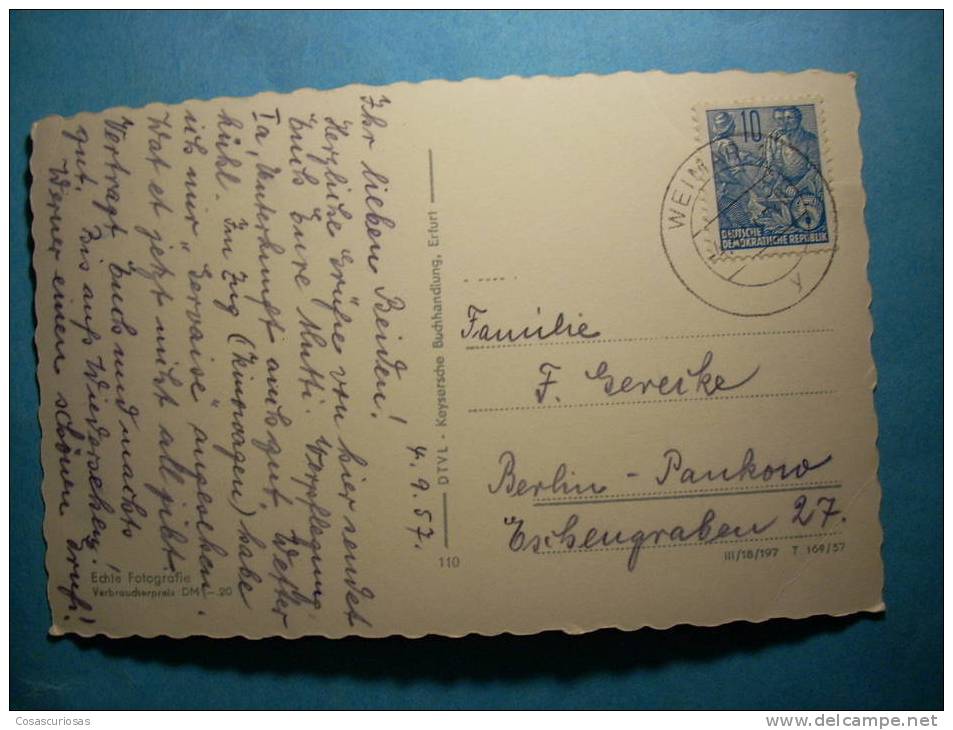 4.9.57.
Ihr lieben Beiden!
Herzliche Grüße von hier sendet
Euch Eure Mutti. Verpflegung
Ia, Unterkunft auch gut, Wetter
kühl. Im Zug (Kinowagen) habe
ich mir „Gervaise" angesehen.
Wat et jetzt nicht all jibt!
Vertragt Euch und macht's
gut. Bis aufs Wiedersehen!
Werner einen schönen Gruß!
Echte Fotografie
Verbraucherpreis DM –.20
DTVL - Keysersche Buchhandlung, Erfurt
110
WEIM
y
10
DEUTSCHE
DEMOKRATISCHE REPUBLIK
Familie
F. Gereike
Berlin - Pankow
Eschengraben 27.
III/18/197 T 169/57
Cosascuriosas
www.delcampe.net